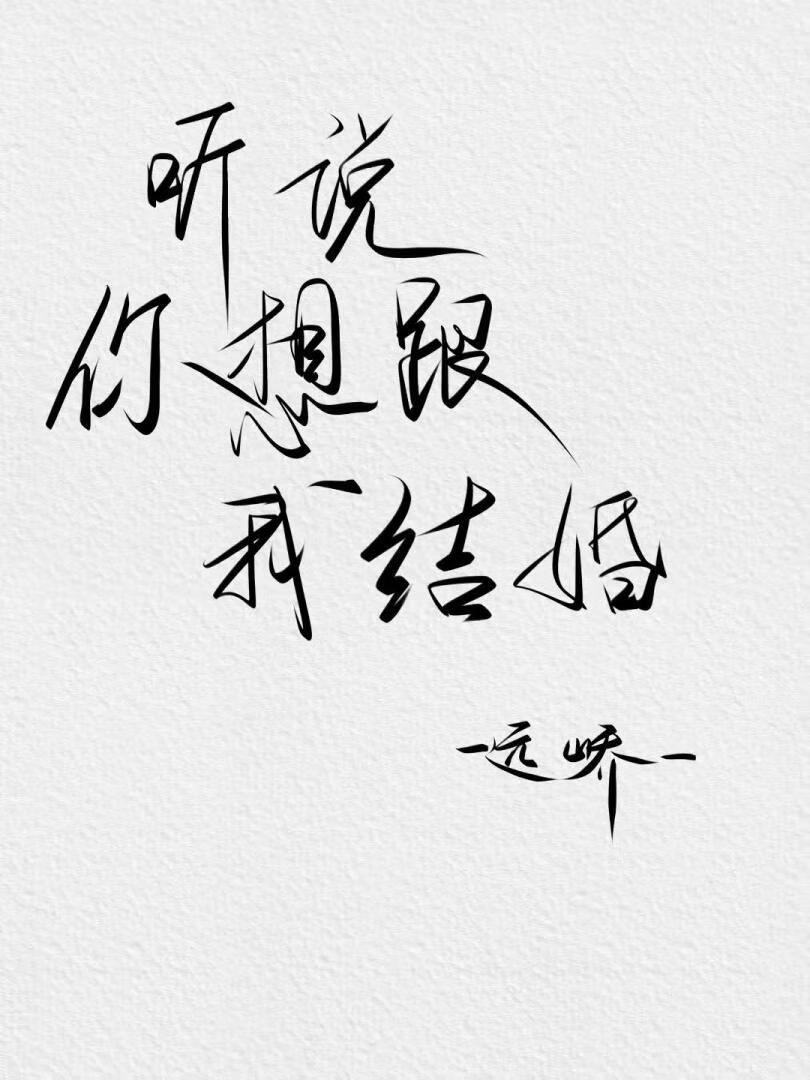 听说
你想跟
我结婚
-远峤-